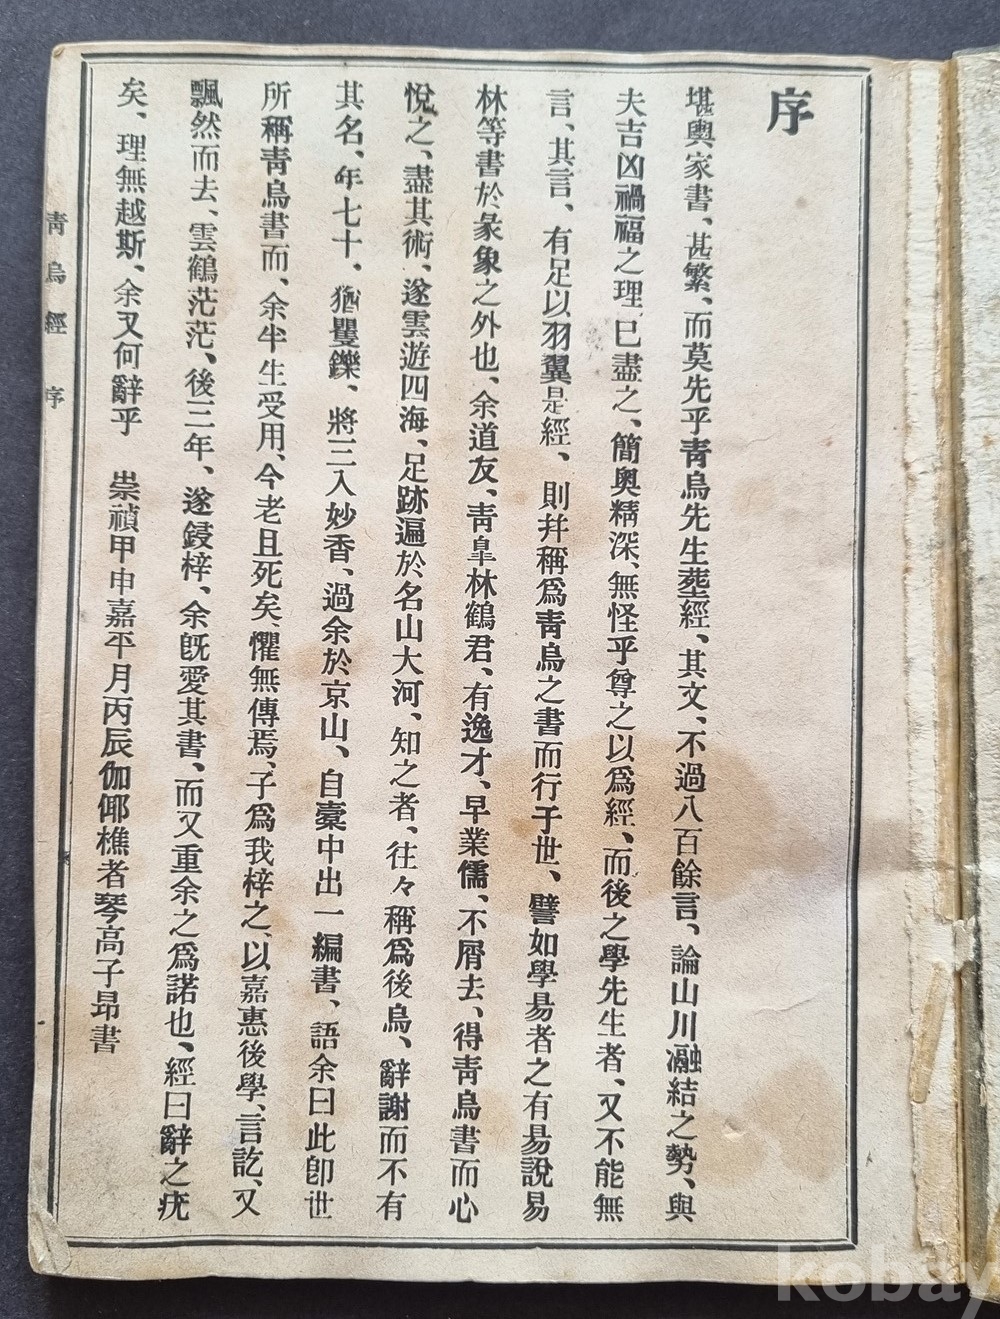 序
堪輿家書、甚繁、而莫先乎靑烏先生葬經、其文、不過八百餘言、論山川瀜結之勢、與
夫吉凶禍福之理、已盡之、簡奧精深、無怪乎尊之以爲經、而後之學先生者、又不能無
言、其言、有足以羽翼是經、則幷稱爲靑烏之書而行于世、譬如學易者之有易說易
林等書於彖象之外也、余道友、靑臯林鶴君、有逸才、早業儒、不屑去、得靑烏書而心
悅之、盡其術、遂雲遊四海、足跡遍於名山大河、知之者、往々稱爲後烏、辭謝而不有
其名、年七十、猶矍鑠、將三入妙香、過余於京山、自橐中出一編書、語余曰此卽世
所稱靑烏書而、余半生受用、今老且死矣、懼無傳焉、子爲我梓之、以嘉惠後學、言訖、又
飄然而去、雲鶴茫茫、後三年、遂鋟梓、余旣愛其書、而又重余之爲諾也、經曰辭之疣
矣、理無越斯、余又何辭乎　崇禎甲申嘉平月丙辰伽倻樵者琴高子昻書
靑烏經　序
kobay